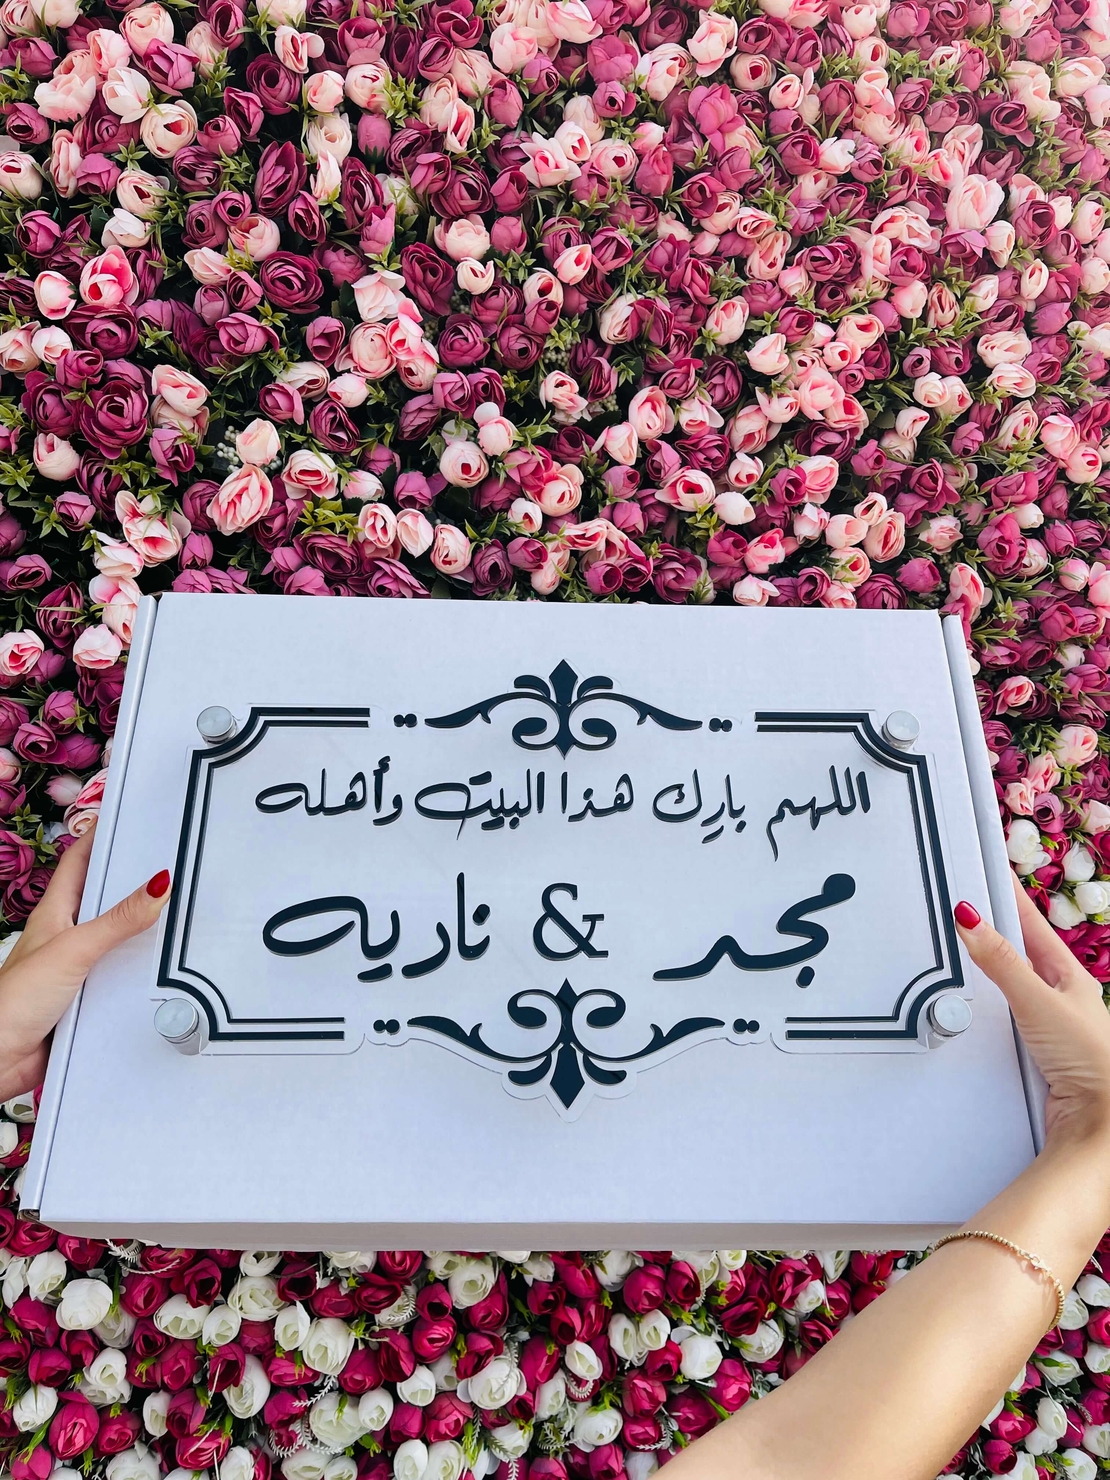 اللهم بارِك هذا البيت وأهله
مجد & ناريه